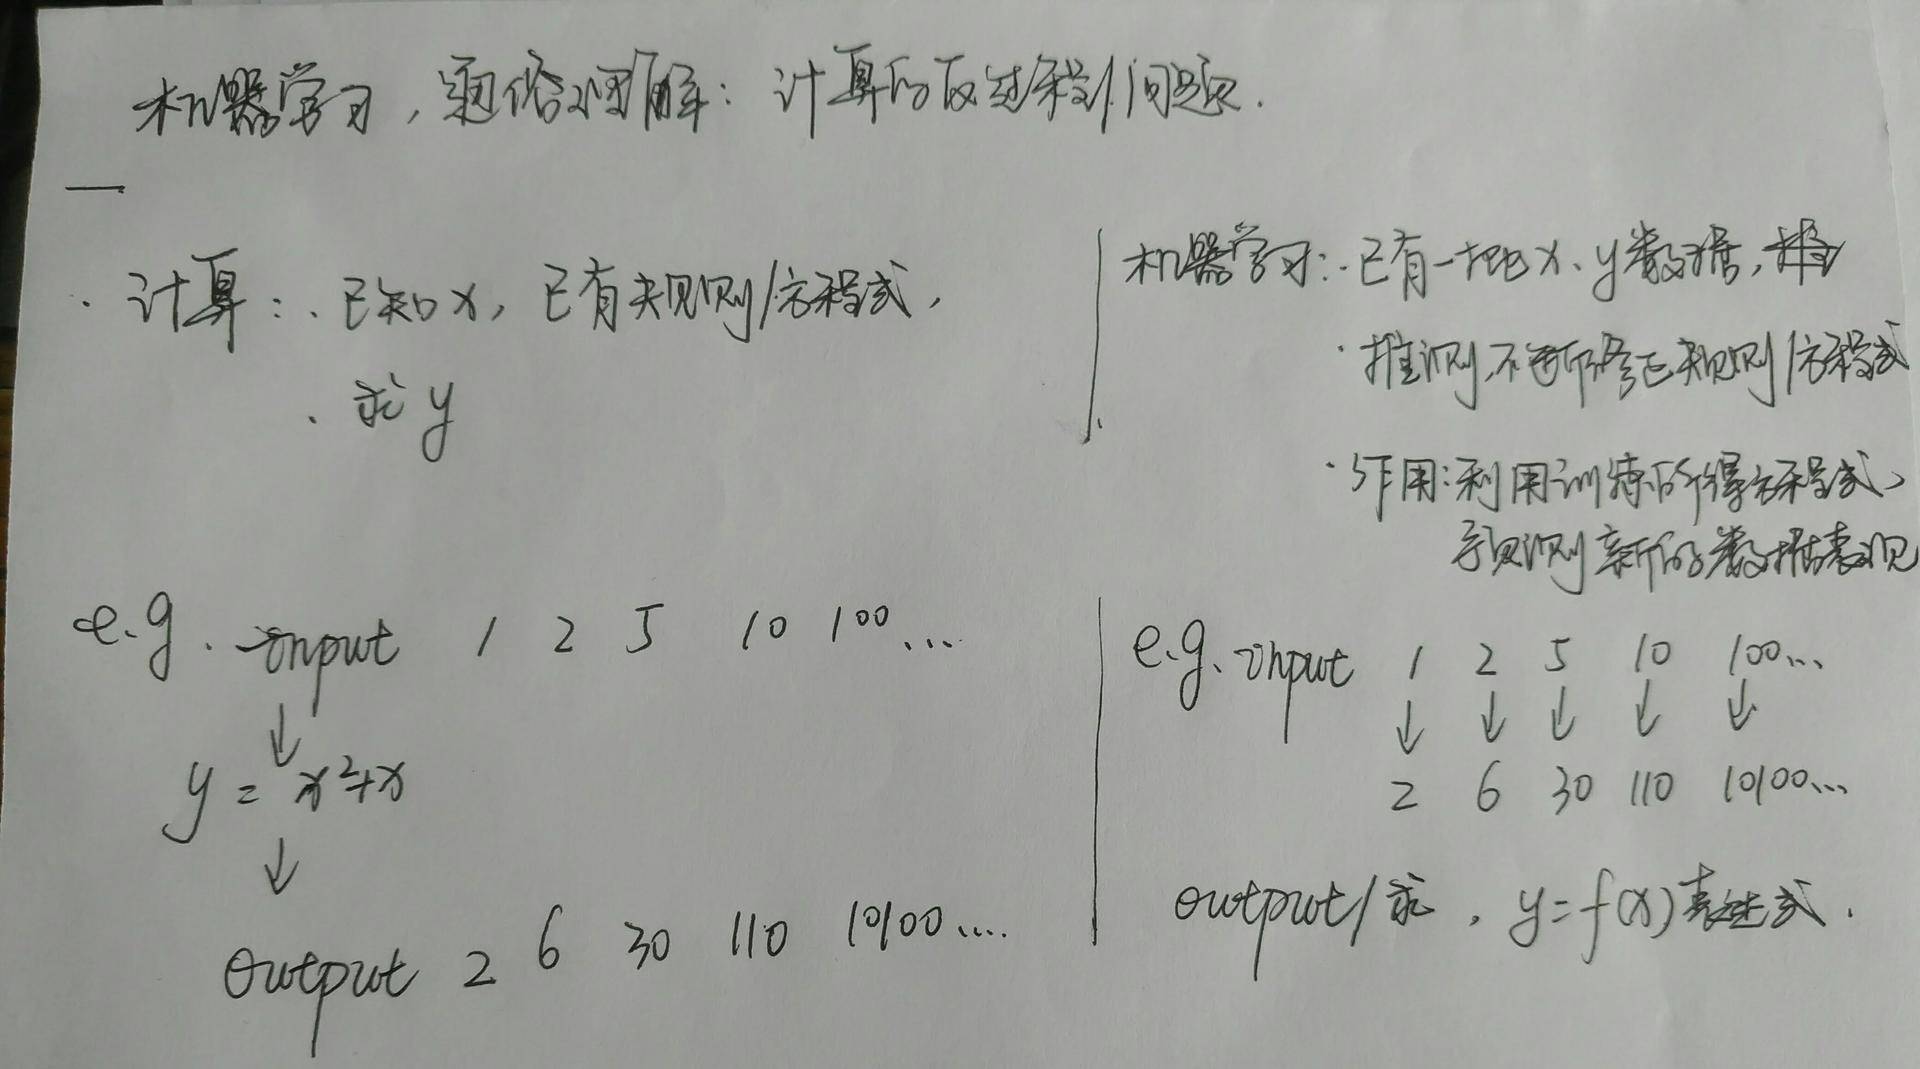 机器学习，通俗理解：计算的反过程问题.
计算：·已知x，已有规则/方程式，
·求y
e.g. input 1 2 5 10 100...
↓
y = x²+x
↓
output 2 6 30 110 10100....
机器学习：·已有一批x、y数据，
·推测，不断修正规则/方程式
·作用：利用训练所得方程式，
预测新的数据表现
e.g. input 1 2 5 10 100...
↓ ↓ ↓ ↓ ↓
2 6 30 110 10100...
output/求，y=f(x)表达式.